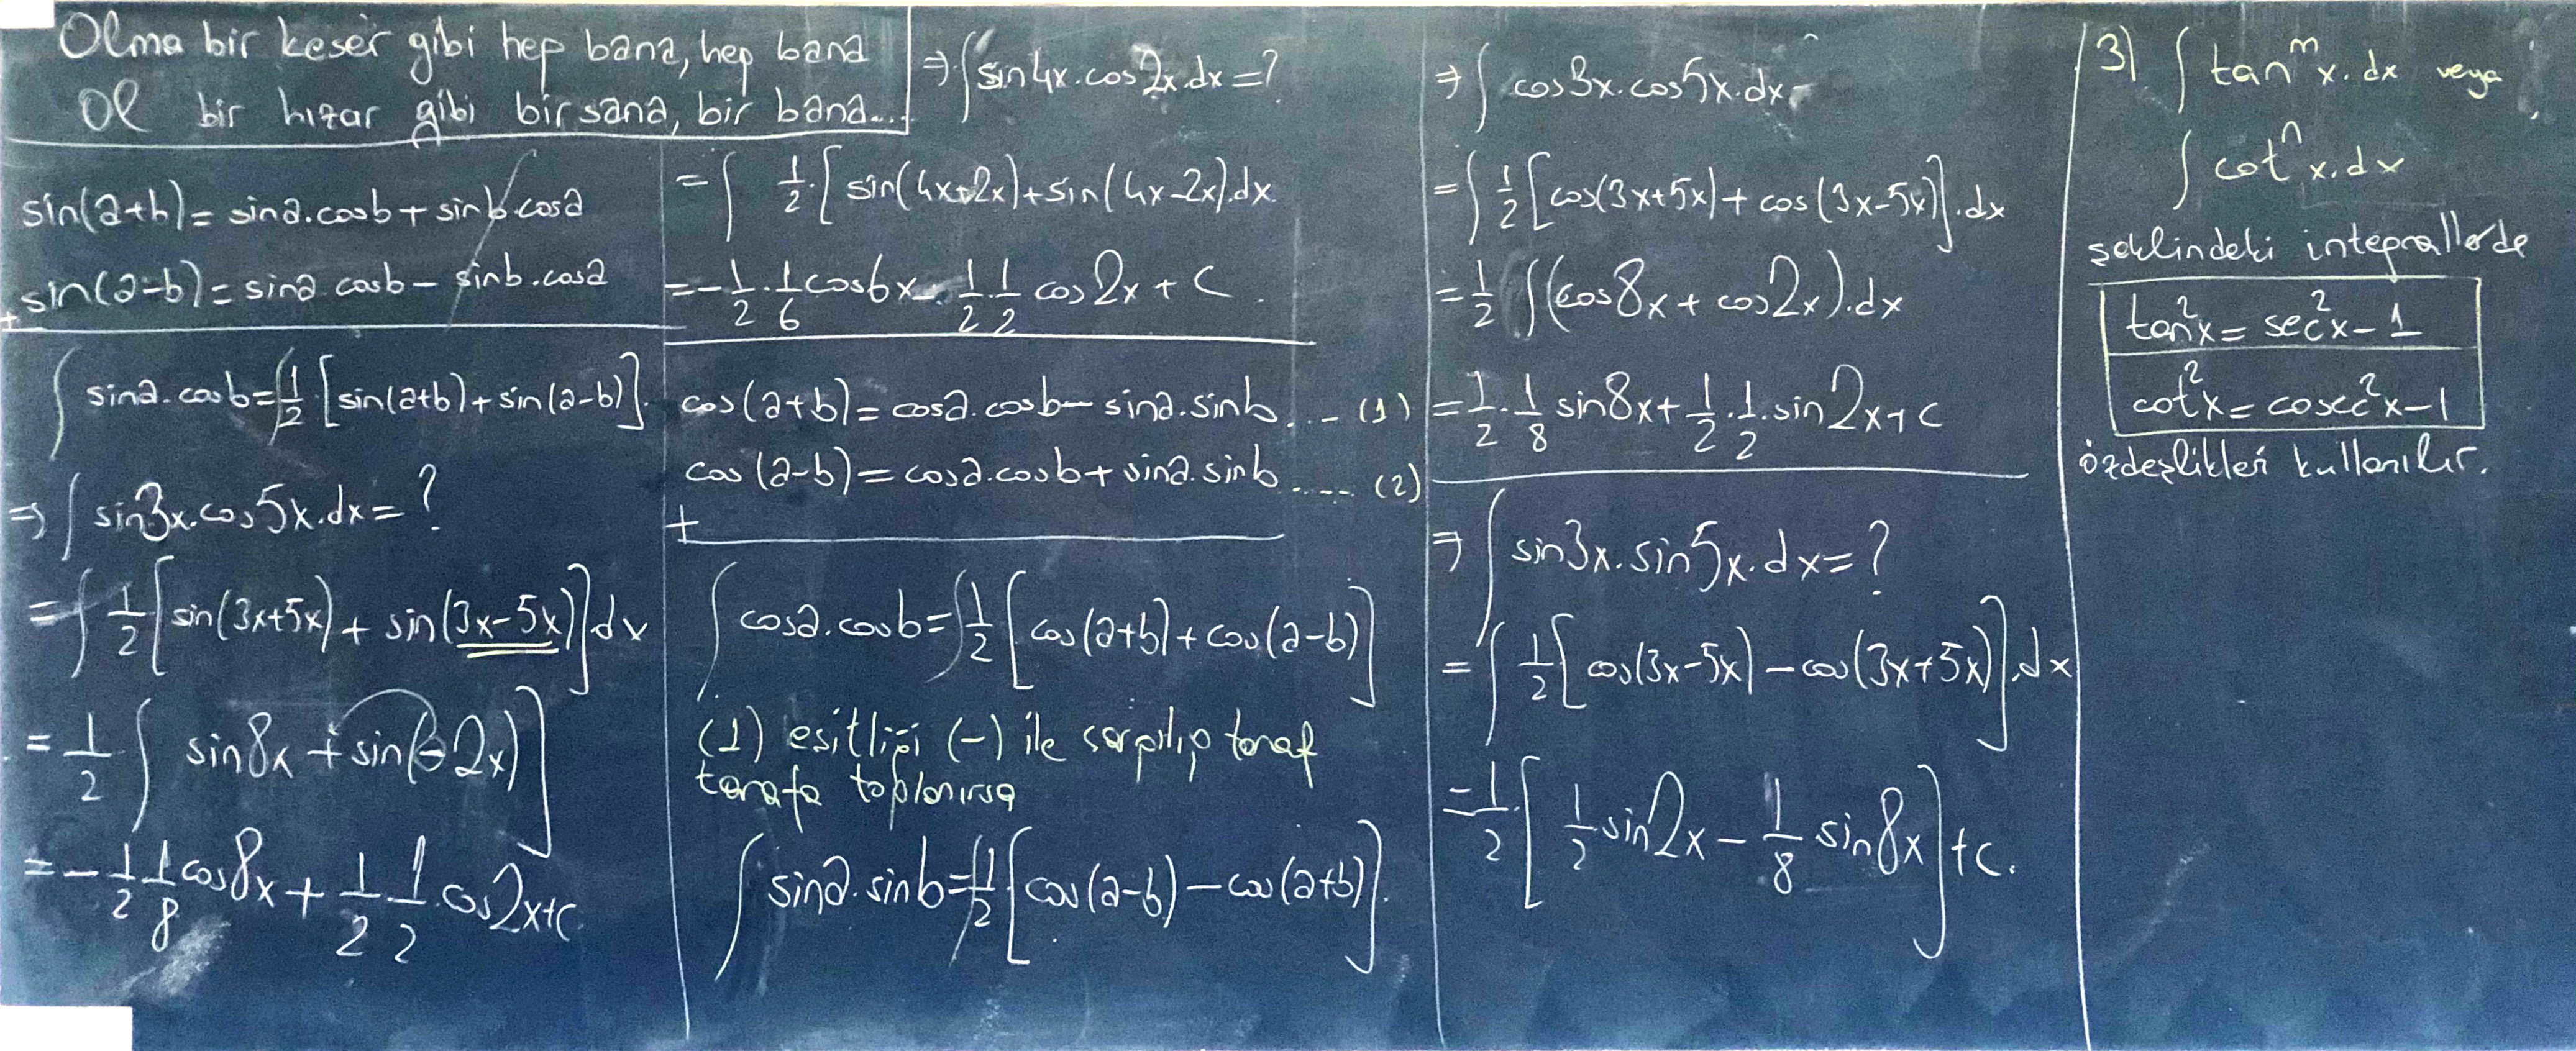 Olma bir keser gibi hep bana, hep bana
Ol bir hızar gibi bir sana, bir bana...
sin(a+b)=sina.cosb+sinb.cosa
sin(a-b)=sina.cosb-sinb.cosa
+
∫sina.cosb=∫1/2[sin(a+b)+sin(a-b)].
⇒∫sin3x.cos5x.dx=?
=∫1/2[sin(3x+5x)+sin(3x-5x)]dx
=1/2∫sin8x+sin(-2x)]
=-1/2 1/8 cos8x+1/2 1/2.cos2x+c.
⇒∫sin4x.cos2x.dx=?
=∫1/2.[sin(4x+2x)+sin(4x-2x).dx.
=-1/2.1/6cos6x-1/2.1/2 cos2x+C.
cos(a+b)=cosa.cosb-sina.sinb...-(1)
cos(a-b)=cosa.cosb+sina.sinb....--(2)
+
∫cosa.cosb=∫1/2[cos(a+b)+cos(a-b)]
(1) esitliği (-) ile çarpılıp taraf
tarafa toplanırsa
∫sina.sinb=∫1/2[cos(a-b)-cos(a+b)].
⇒∫cos3x.cos5x.dx=
=∫1/2[cos(3x+5x)+cos(3x-5x)].dx
=1/2∫(cos8x+cos2x).dx
=1/2.1/8 sin8x+1/2.1/2.sin2x+c
⇒∫sin3x.sin5x.dx=?
=∫1/2[cos(3x-5x)-cos(3x+5x)].dx
=1/2.[1/2sin2x-1/8 sin8x]+c.
3) ∫tanᵐx.dx veya
∫cotⁿx.dx
şeklindeki integrallerde
tan²x=sec²x-1
cot²x=cosec²x-1
özdeşlikleri kullanılır.